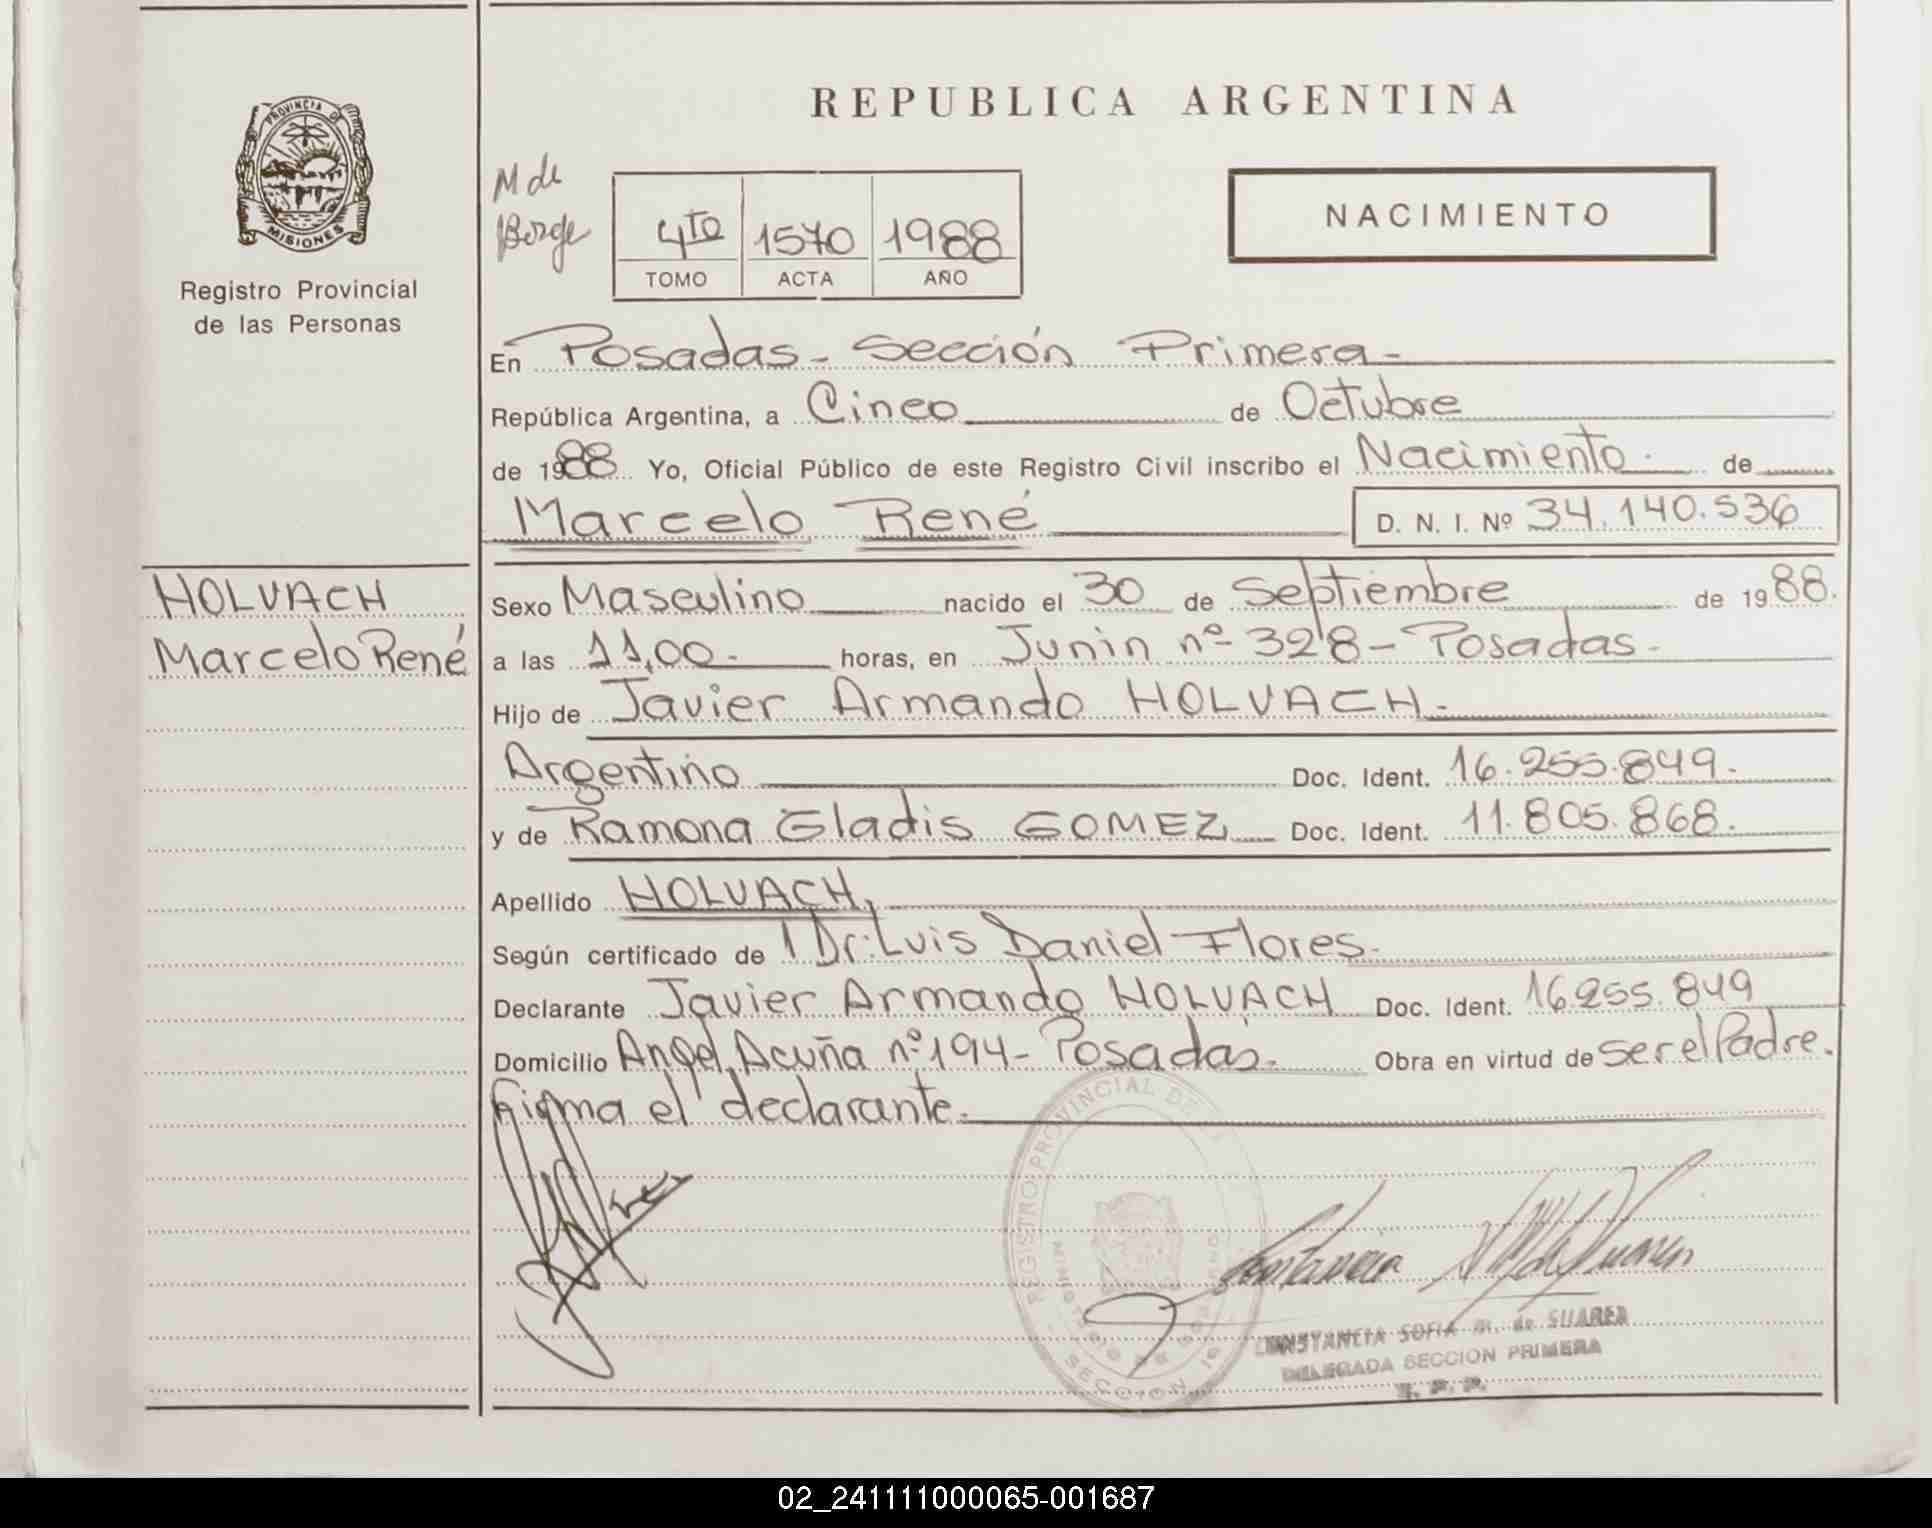 PROVINCIA DE
MISIONES
Registro Provincial
de las Personas
HOLVACH
Marcelo René
REPUBLICA ARGENTINA
M de
Borge
4TO 1570 1988
TOMO ACTA AÑO
NACIMIENTO
En Posadas - Sección Primera -
República Argentina, a Cinco de Octubre
de 1988 Yo, Oficial Público de este Registro Civil inscribo el Nacimiento de
Marcelo René D. N. I. Nº 34.140.536
Sexo Masculino nacido el 30 de Septiembre de 1988.
a las 11,00- horas, en Junin nº 328 - Posadas -
Hijo de Javier Armando HOLVACH -
Argentino Doc. Ident. 16.255.849.
y de Ramona Gladis GOMEZ Doc. Ident. 11.805.868.
Apellido HOLVACH,
Según certificado de Dr: Luis Daniel Flores.
Declarante Javier Armando HOLVACH Doc. Ident. 16.255.849
Domicilio Angel Acuña nº 194 - Posadas. Obra en virtud de ser el Padre.
Firma el declarante.
REGISTRO PROVINCIAL DE
SECCION
CONSTANCIA SOFIA M. de SUAREZ
DELEGADA SECCION PRIMERA
R. P. P.
02_241111000065-001687